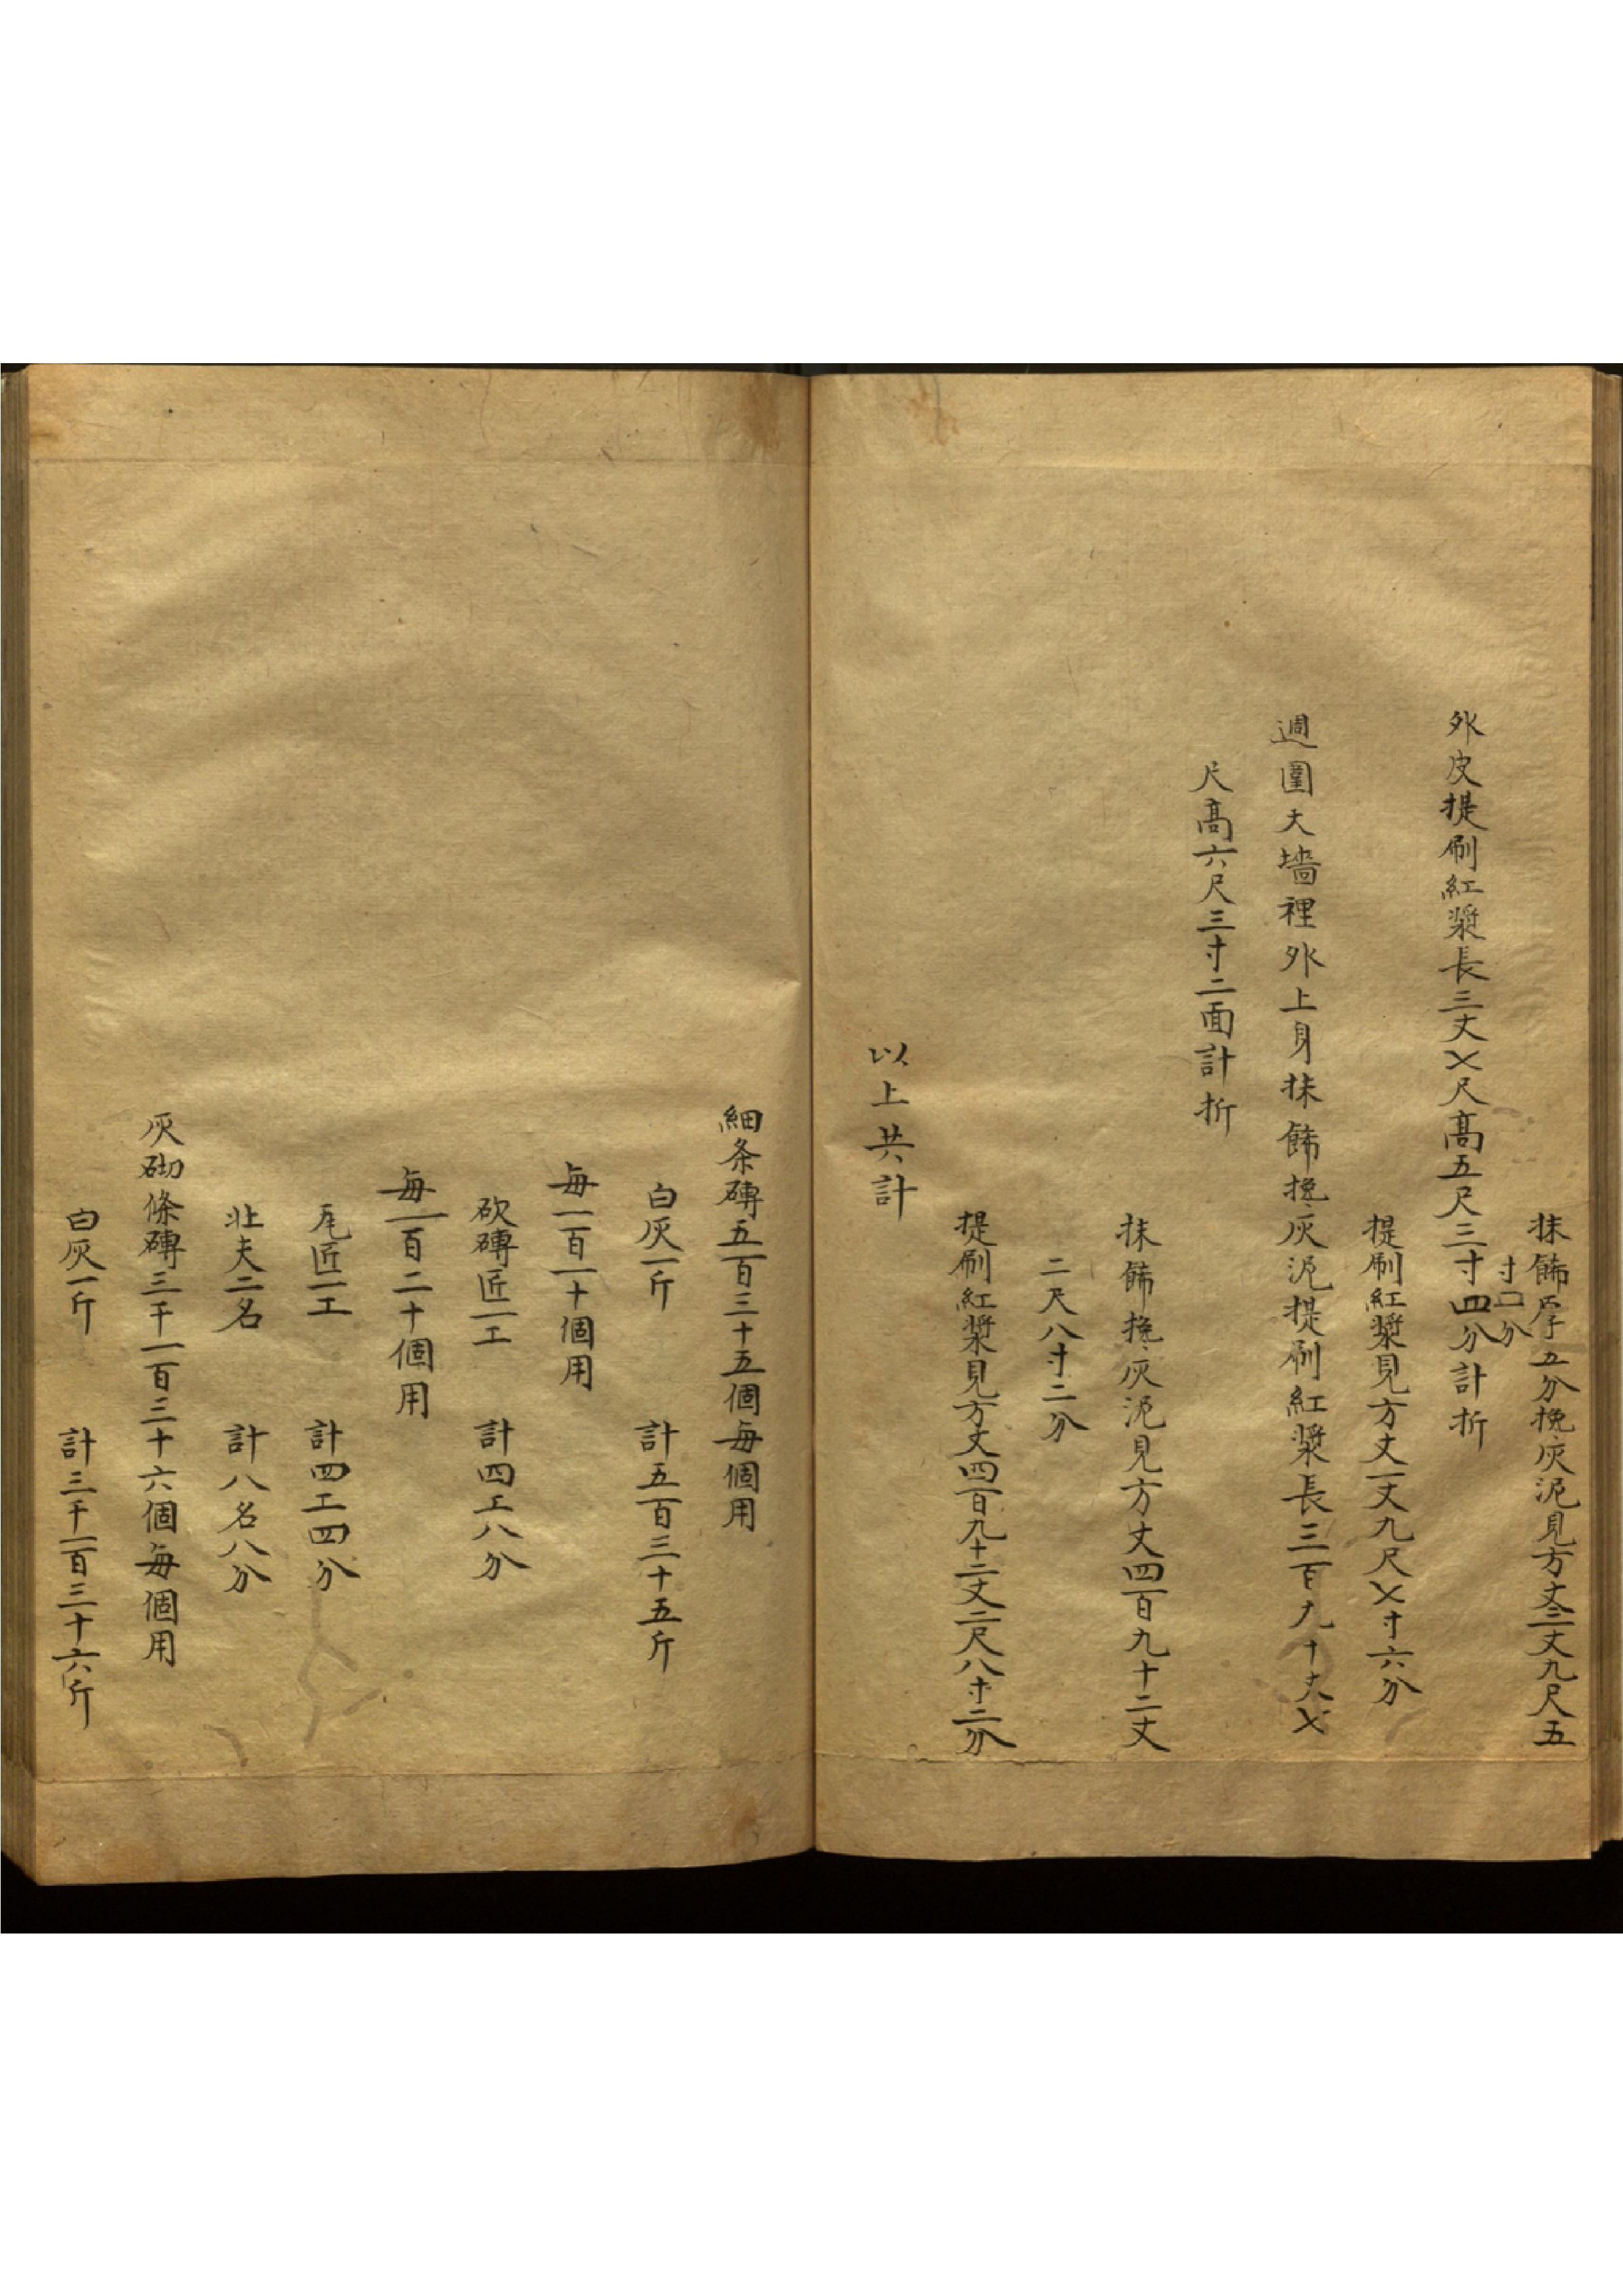 抹飾厚五分挽灰泥見方丈二丈九尺五
寸口分
外皮提刷紅漿長三丈㐅尺髙五尺三寸四分計折
提刷紅漿見方丈一丈九尺㐅寸六分
週圍大墻裡外上身抹飾挽灰泥提刷紅漿長三百九十丈㐅
尺髙六尺三寸二面計折
抹飾挽灰泥見方丈四百九十二丈
二尺八寸二分
提刷紅漿見方丈四百九十二丈二尺八寸二分
以上共計
細条磚五百三十五個每個用
白灰一斤 計五百三十五斤
每一百一十個用
砍磚匠一工 計四工八分
每一百二十個用
瓦匠一工 計四工四分
壯夫二名 計八名八分
灰砌條磚三千一百三十六個每個用
白灰一斤 計三千一百三十六斤